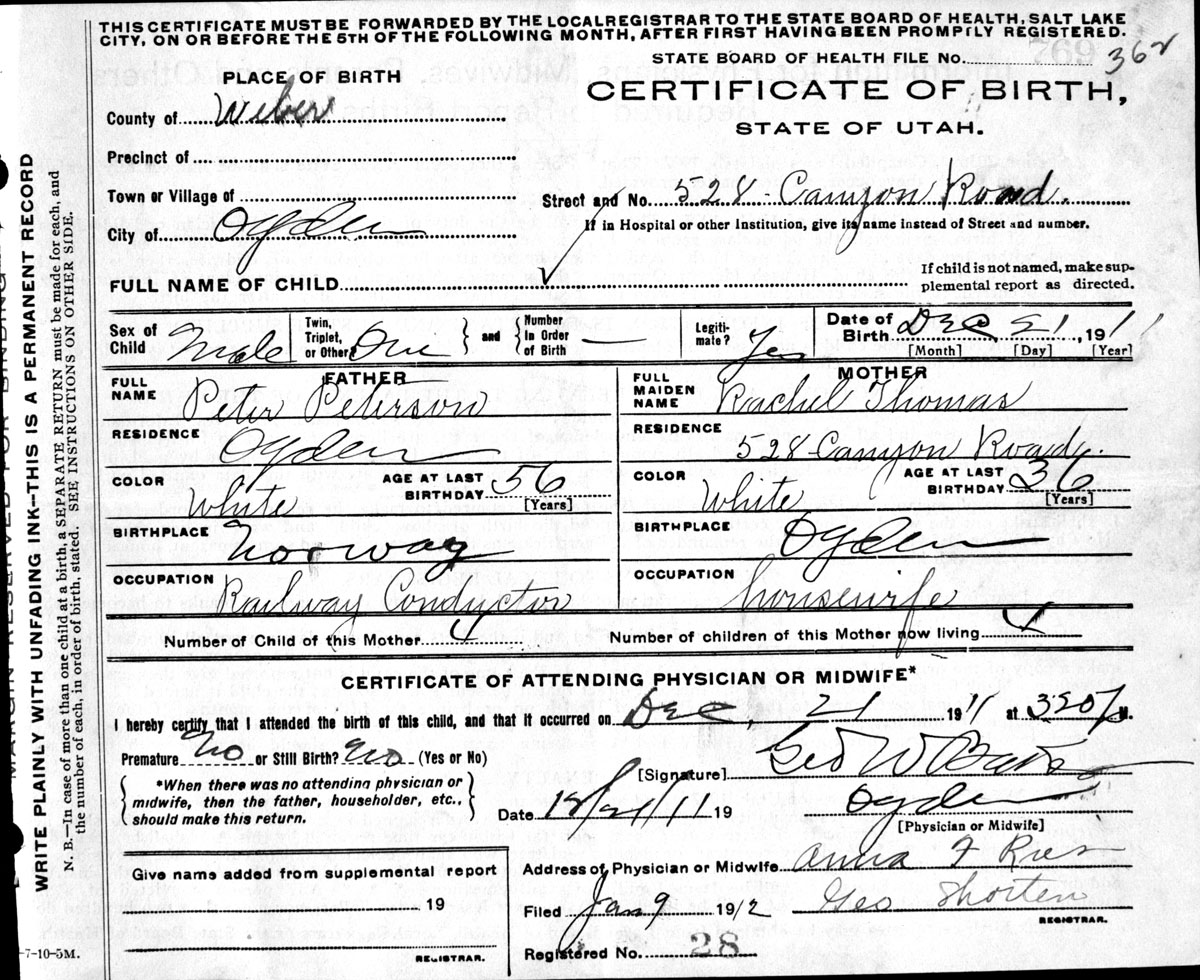 THIS CERTIFICATE MUST BE FORWARDED BY THE LOCAL REGISTRAR TO THE STATE BOARD OF HEALTH, SALT LAKE
CITY, ON OR BEFORE THE 5TH OF THE FOLLOWING MONTH, AFTER FIRST HAVING BEEN PROMPTLY REGISTERED.
STATE BOARD OF HEALTH FILE NO. 362
PLACE OF BIRTH
CERTIFICATE OF BIRTH,
STATE OF UTAH.
County of Weber
Precinct of
Town or Village of
Street and No. 528 Canyon Road.
City of Ogden
If in Hospital or other Institution, give its name instead of Street and number.
FULL NAME OF CHILD
If child is not named, make sup-
plemental report as directed.
Sex of Child Male
Twin, Triplet, or Other One and Number In Order of Birth —
Legiti-mate? Yes
Date of Birth Dec 21, 1911
[Month] [Day] [Year]
FATHER
FULL NAME Peter Peterson
RESIDENCE Ogden
COLOR White
AGE AT LAST BIRTHDAY 56 [Years]
BIRTHPLACE Norway
OCCUPATION Railway Conductor
MOTHER
FULL MAIDEN NAME Rachel Thomas
RESIDENCE 528 Canyon Road.
COLOR White
AGE AT LAST BIRTHDAY 36 [Years]
BIRTHPLACE Ogden
OCCUPATION housewife
Number of Child of this Mother 4
Number of children of this Mother now living 4
CERTIFICATE OF ATTENDING PHYSICIAN OR MIDWIFE*
I hereby certify that I attended the birth of this child, and that it occurred on Dec, 21 1911 at M.
Premature No or Still Birth? No (Yes or No)
*When there was no attending physician or
midwife, then the father, householder, etc.,
should make this return.
[Signature] Geo W
Date 12/21/11 19
Ogden
[Physician or Midwife]
Give name added from supplemental report
19
REGISTRAR.
Address of Physician or Midwife Anna F
Filed Jan 9 1912 Geo Shorten
REGISTRAR.
Registered No. 28
-7-10-5M.
MARGIN RESERVED FOR BINDING
WRITE PLAINLY WITH UNFADING INK—THIS IS A PERMANENT RECORD
N. B.—In case of more than one child at a birth, a SEPARATE RETURN must be made for each, and
the number of each, in order of birth, stated. SEE INSTRUCTIONS ON OTHER SIDE.